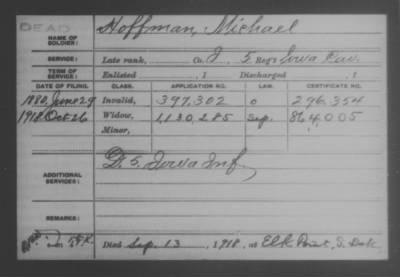 DEAD
NAME OF SOLDIER: Hoffman, Michael
SERVICE: Late rank, Co. I 5 Reg't Iowa Cav.
TERM OF SERVICE: Enlisted , 1 Discharged , 1
DATE OF FILING. CLASS. APPLICATION NO. LAW. CERTIFICATE NO.
1880, June 29 Invalid, 397,302 o 296.354
1918 Oct 26 Widow, 1,130,285 Sep. 864,005
Minor,
ADDITIONAL SERVICES: D. 5. Iowa Inf.
REMARKS:
Died Sep. 13, 1918, at Elk Point, S. Dak.